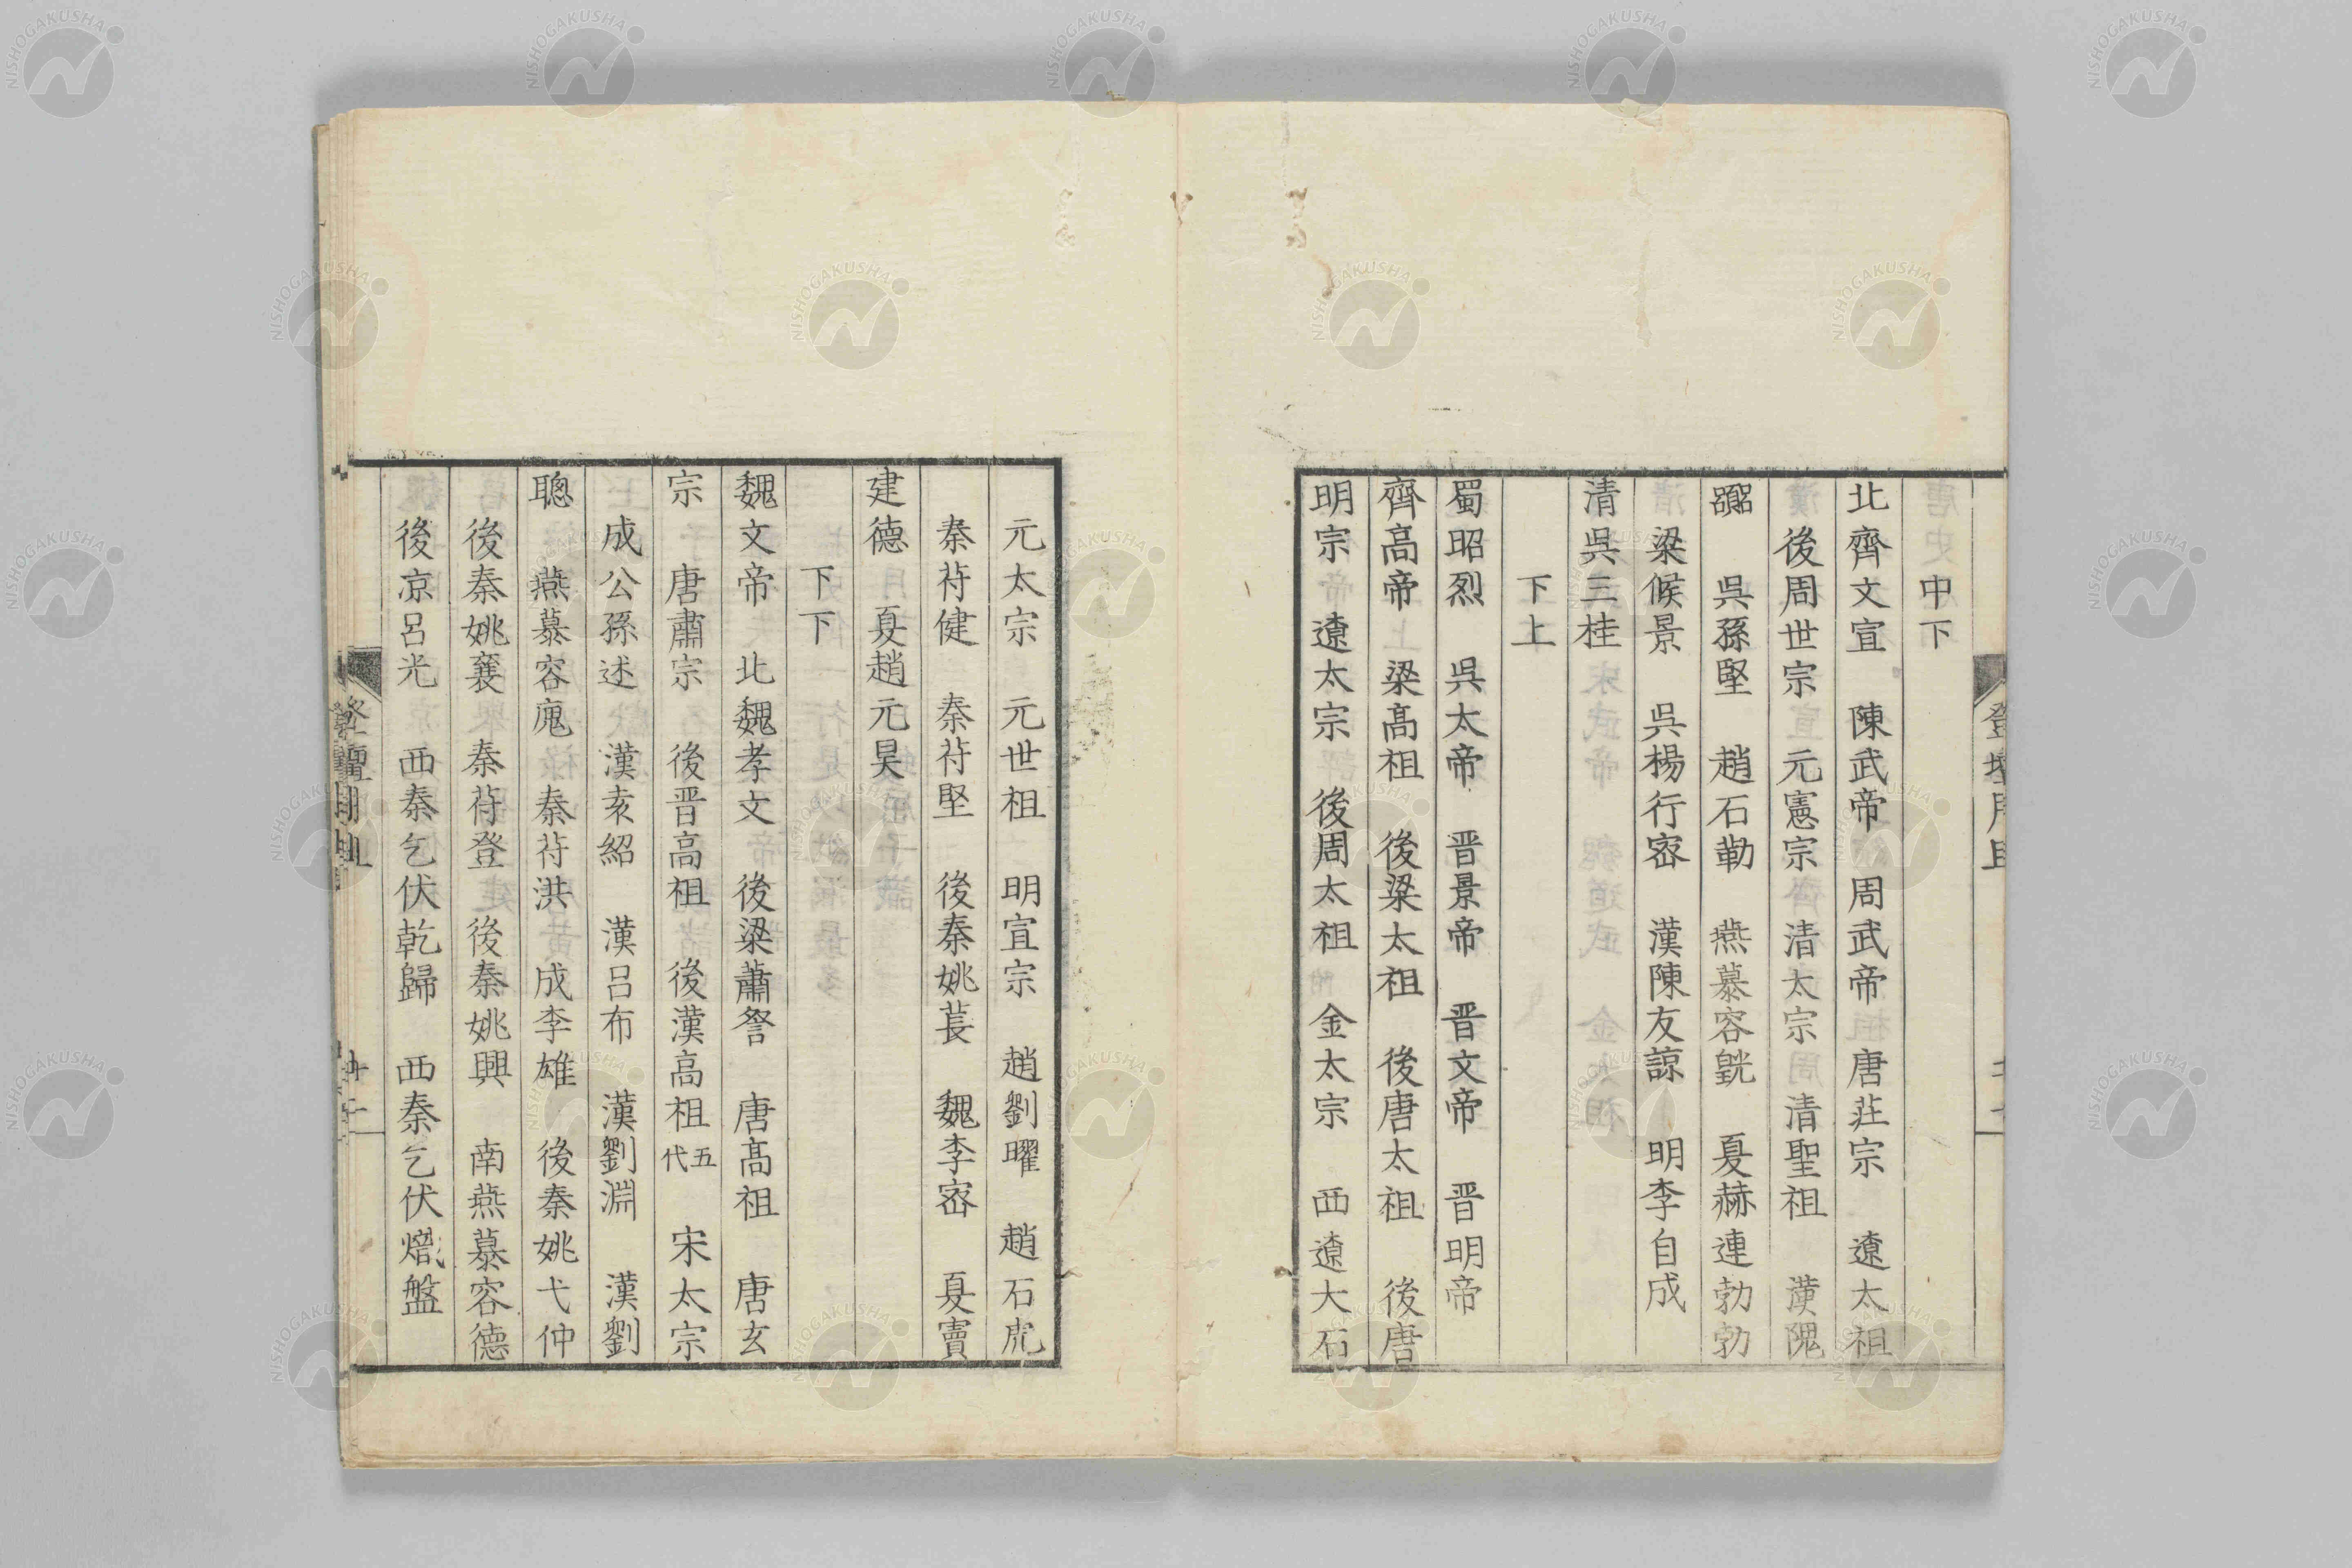 中下
北齊文宣　陳武帝　周武帝　唐莊宗　遼太祖
後周世宗　元憲宗　清太宗　清聖祖　漢隗
囂　吳孫堅　趙石勒　燕慕容皝　夏赫連勃勃
梁候景　吳楊行密　漢陳友諒　明李自成
清吳三桂
下上
蜀昭烈　吳太帝　晋景帝　晋文帝　晋明帝
齊高帝　梁高祖　後梁太祖　後唐太祖　後唐
明宗　遼太宗　後周太祖　金太宗　西遼大石
元太宗　元世祖　明宣宗　趙劉曜　趙石虎
秦苻健　秦苻堅　後秦姚萇　魏李密　夏竇
建德　夏趙元昊
下下
魏文帝　北魏孝文　後梁蕭詧　唐高祖　唐玄
宗　唐肅宗　後晋高祖　後漢高祖五代　宋太宗
成公孫述　漢袁紹　漢呂布　漢劉淵　漢劉
聰　燕慕容廆　秦苻洪　成李雄　後秦姚弋仲
後秦姚襄　秦苻登　後秦姚興　南燕慕容德
後凉呂光　西秦乞伏乾歸　西秦乞伏熾盤